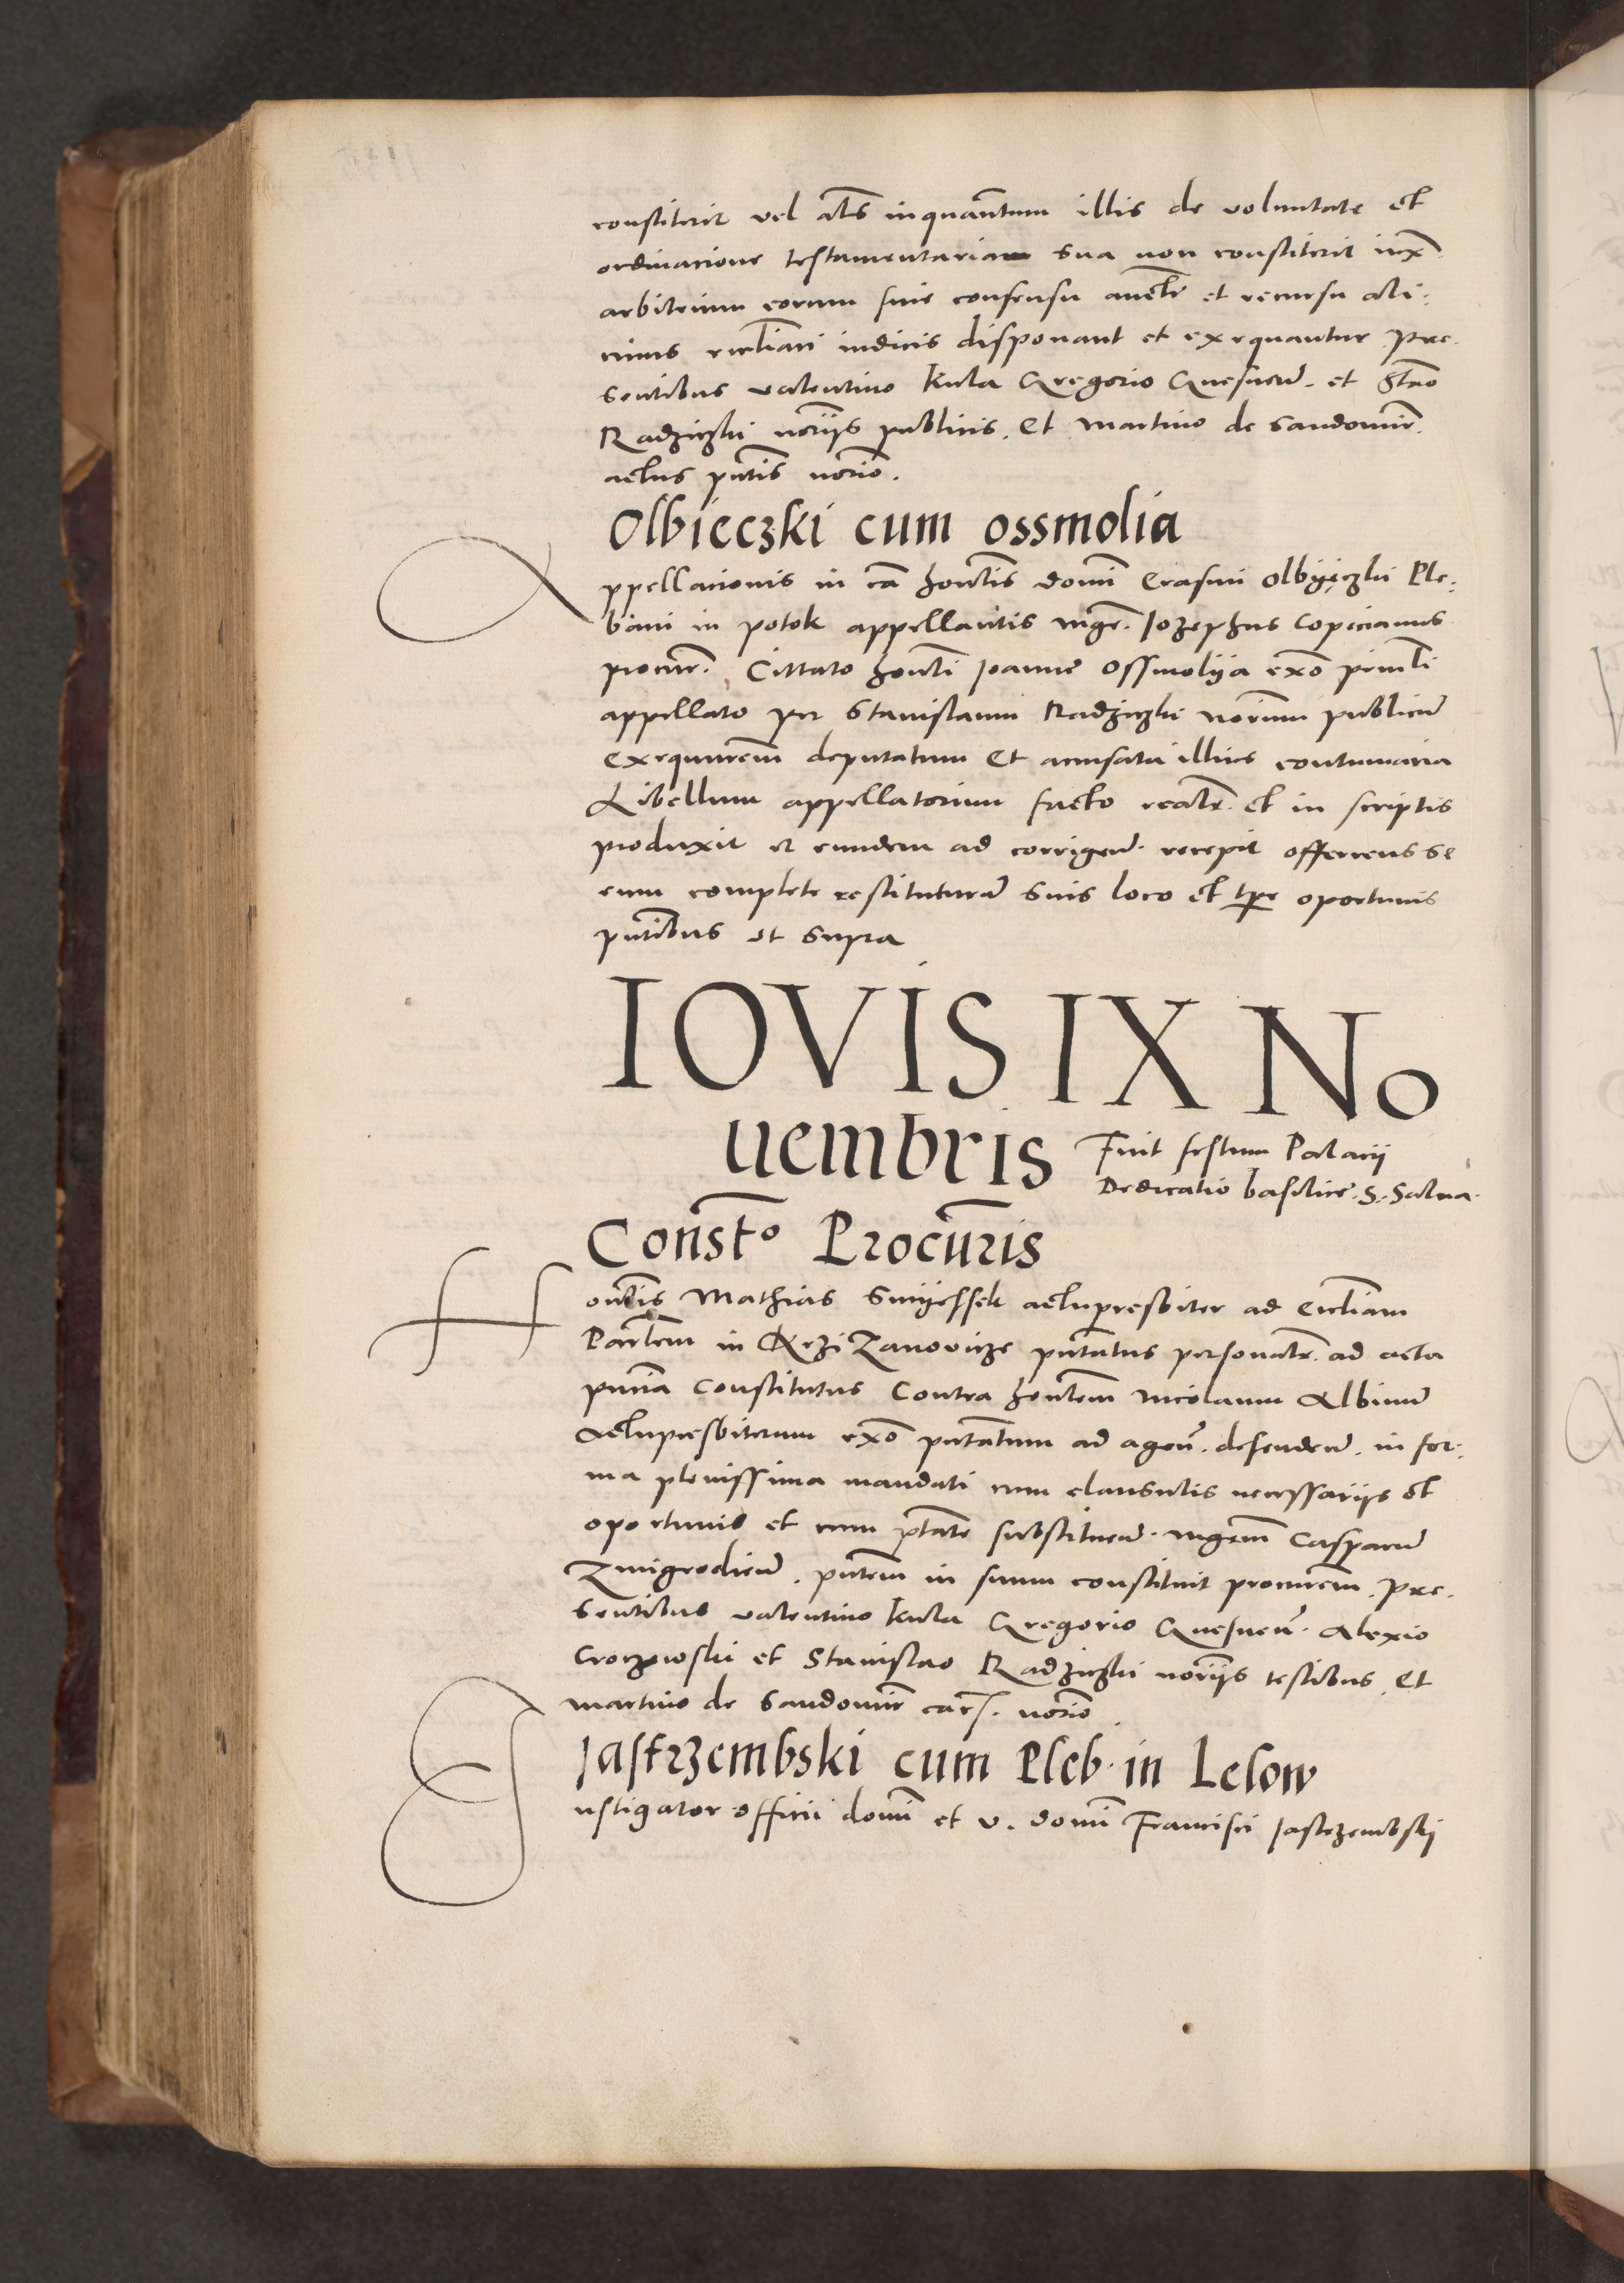 constiterit vel al̄s inquan̄tum illis de voluntate et
ordinacione testamentaria sua non constiterit iux̄
arbitrium eorum sine consensu auctē et recursu ali:
cuius eccl̄iaci iudicis disponant et exequantur Pre.
sentibus valentino Kula Gregorio Gnesneñ. et Stāo
Radziczki nōriis publicis. Et martino de Sandomir̄.
actus pn̄tis nōrio.
Olbieczki cum ossmolia
Appellacionis in cā hon̄lis domī Erasmi Olbyęczki Ple:
bani in potok appellantis mgr̄. Jozephus Copecianus
procur̄. Cittato hon̄li Joanne Ossmolija exō prīnc̄li
appellato per Stanislaum Radziczki nōrium publicū
exequutorem̄ deputatum Et accusata illius contumacia
Libellum appellatorium facto realr̄. et in scriptis
produxit et eundem ad corrigenď. recepit offerens se
eum complete restituturū suis loco et tp̄re oportunis
pn̄tibus ut supra
IOVIS IX No
uembris Fuit festum Palacii
Dedicatio basilice. S. Salua.
Const̄o Procūris
Hon̄lis Mathias Smijessek actupresbiter ad Eccl̄iam
Parlēm in Krzizanovicze pn̄tatus personalr̄. ad acta
pn̄cia constitutus Contra hon̄lem nicolaum Albinū
Actupresbiterum exō pn̄tatum ad agenď. defendenď. in for:
ma plenissima mandati cum clausulis necessariis et
oportunis et cum p̄tate substituenď. mgrm̄ Casparū
Zmigrodien̄. pn̄tem in suum constituit procurem̄. Pre.
sentibus valentino Kula Gregorio Gnesneñ. Alexio
Croczowski et Stanislao Radziczki nōriis testibus. Et
martino de Sandomir̄ caus̄. nōrio.
Jastrzembski cum Pleb. in Lelow
Instigator officii domī et v. domī Francisci Jastrzembskj